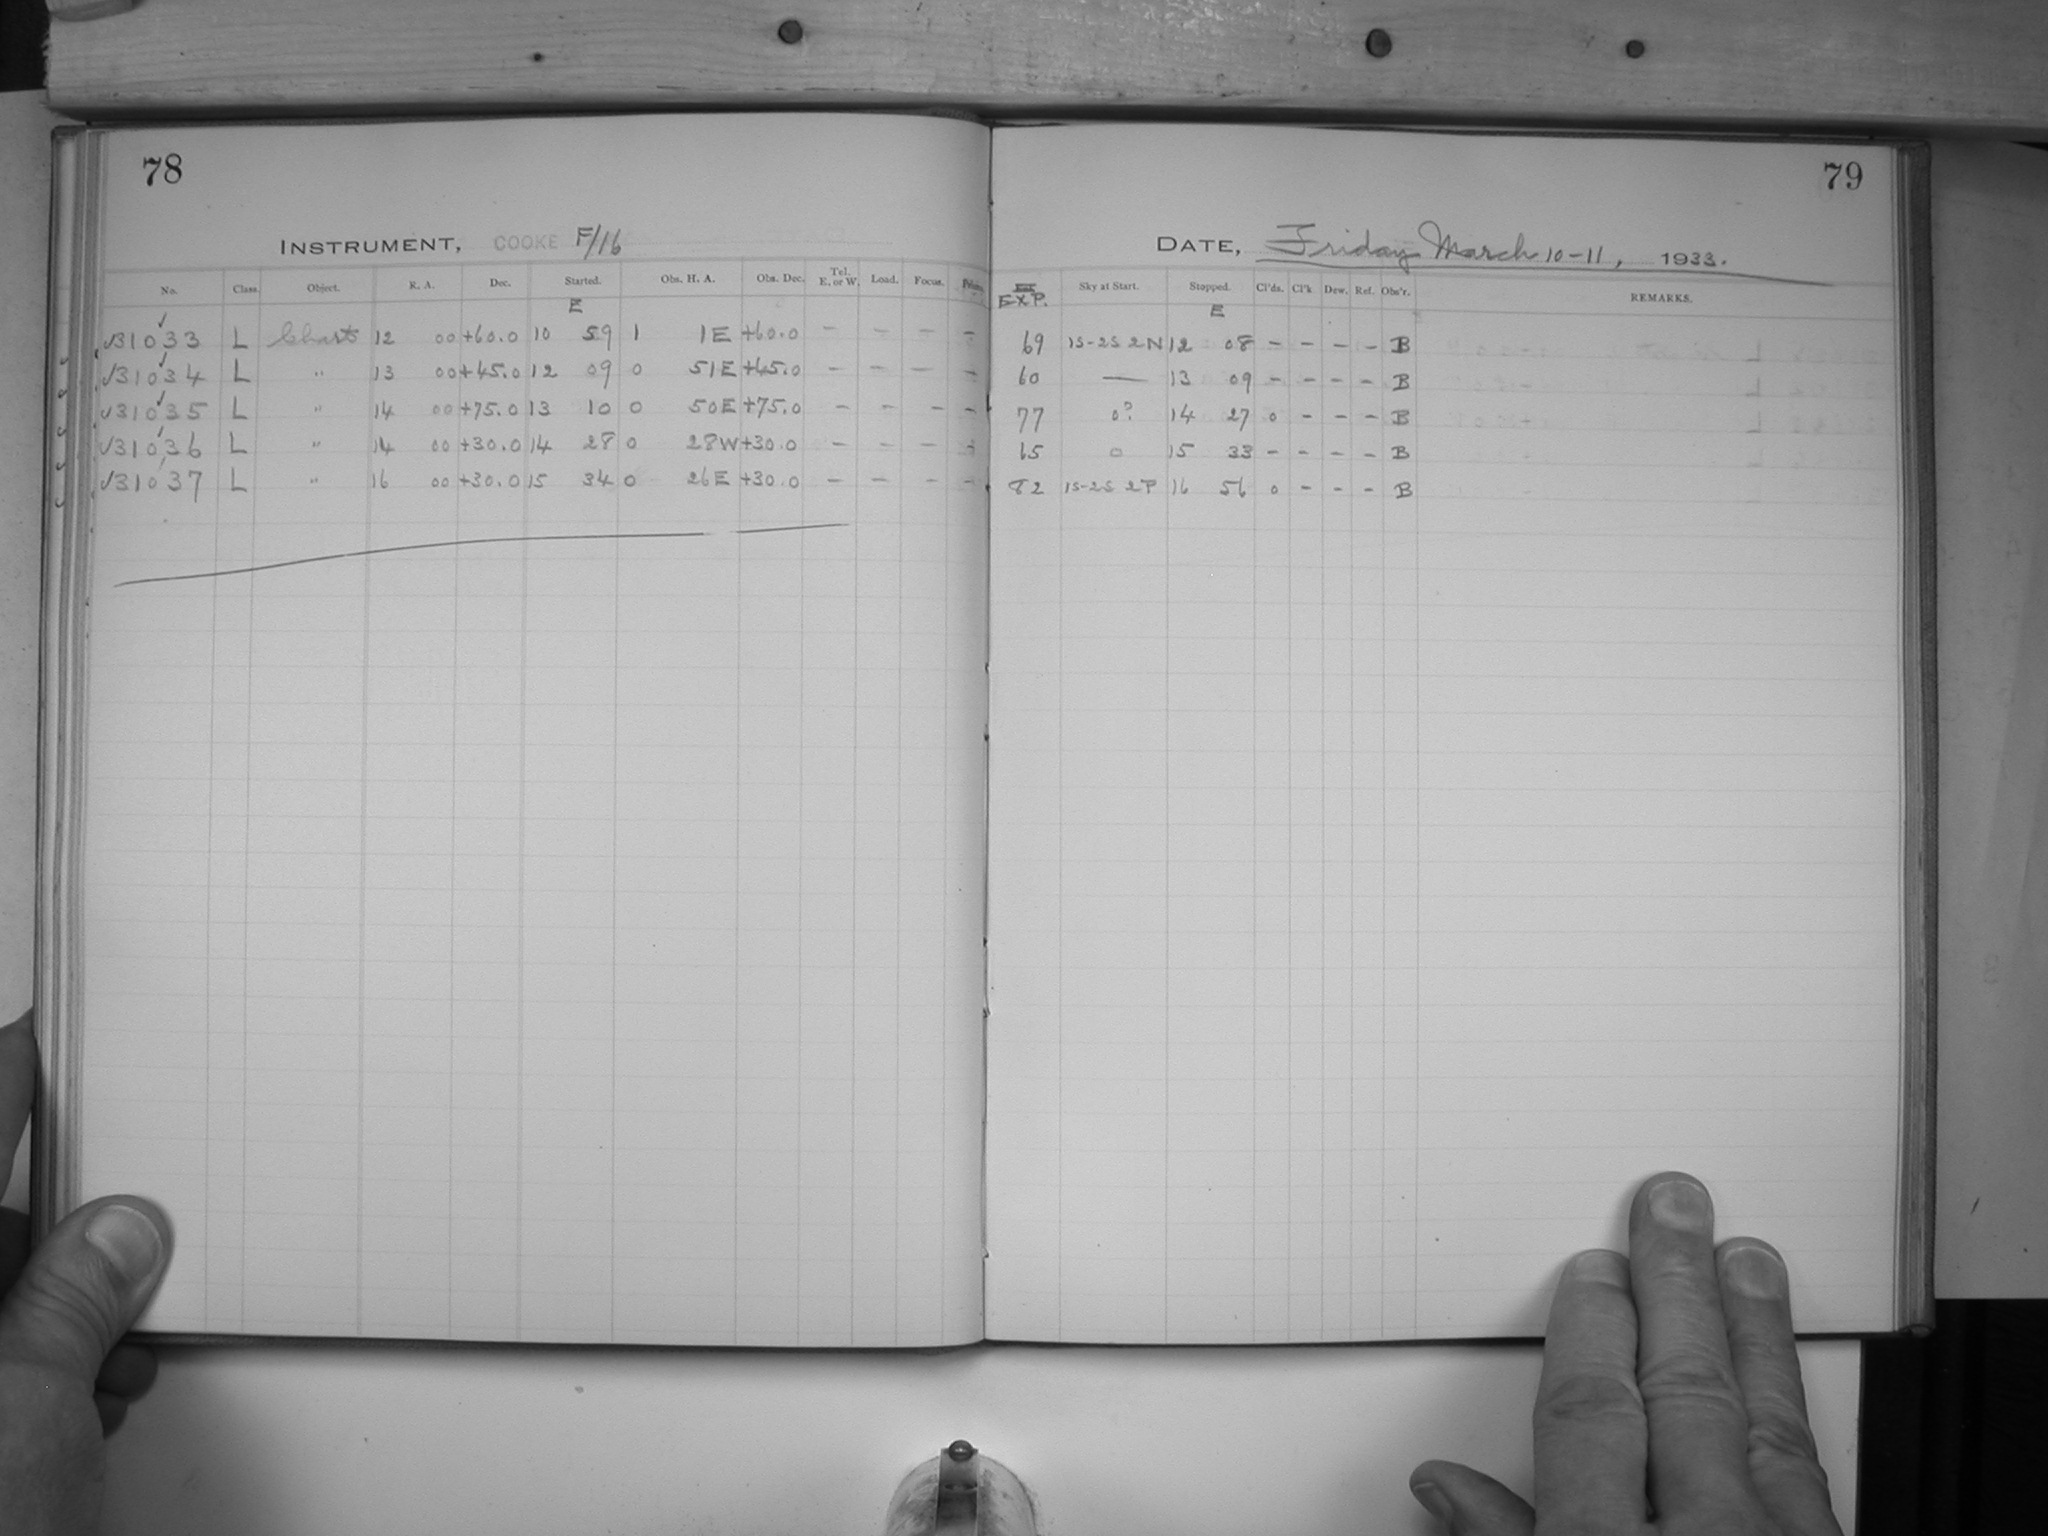 78
INSTRUMENT, COOKE F/16
No. Class. Object. R. A. Dec. Started. Obs. H. A. Obs. Dec. Tel. E. or W. Load. Focus.
E
√31033 L Charts 12 00 +60.0 10 59 1 1E +60.0 - - - -
√31034 L " 13 00 +45.0 12 09 0 51E +45.0 - - - -
√31035 L " 14 00 +75.0 13 10 0 50E +75.0 - - - -
√31036 L " 14 00 +30.0 14 28 0 28W +30.0 - - - -
√31037 L " 16 00 +30.0 15 34 0 26E +30.0 - - - -
79
DATE, Friday March 10-11, 1933.
EXP. Sky at Start. Stopped. Cl'ds. Cl'k Dew. Ref. Obs'r. REMARKS.
E
69 1S-2S 2N 12 08 - - - - B
60 — 13 09 - - - - B
77 0? 14 27 0 - - - B
65 0 15 33 - - - - B
82 1S-2S 2P 16 56 0 - - - B